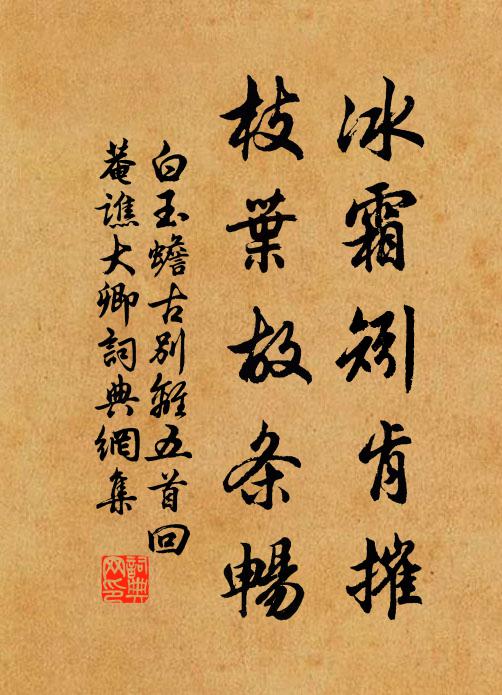 冰霜矧肯摧
枝葉故条暢
白玉蟾古別離五首回
菴譙大卿詞典網集
詞典网印